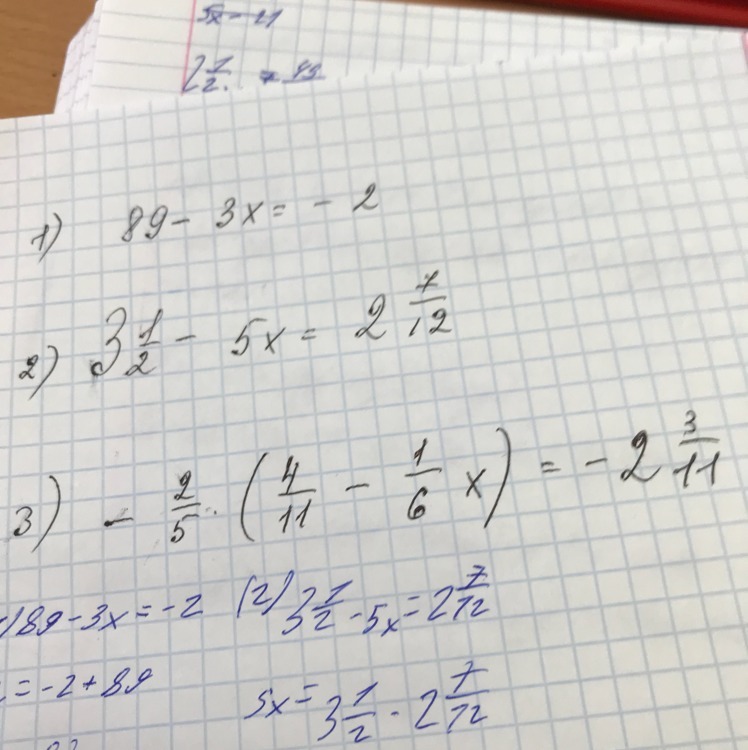 5x - 21
2 1/2
1) 89 - 3x = - 2
2) 3 1/2 - 5x = 2 7/12
3) - 2/5 · (4/11 - 1/6 x) = - 2 3/11
) 89 - 3x = -2 (2) 3 1/2 - 5x = 2 7/12
= -2 + 89
5x = 3 1/2 - 2 7/12